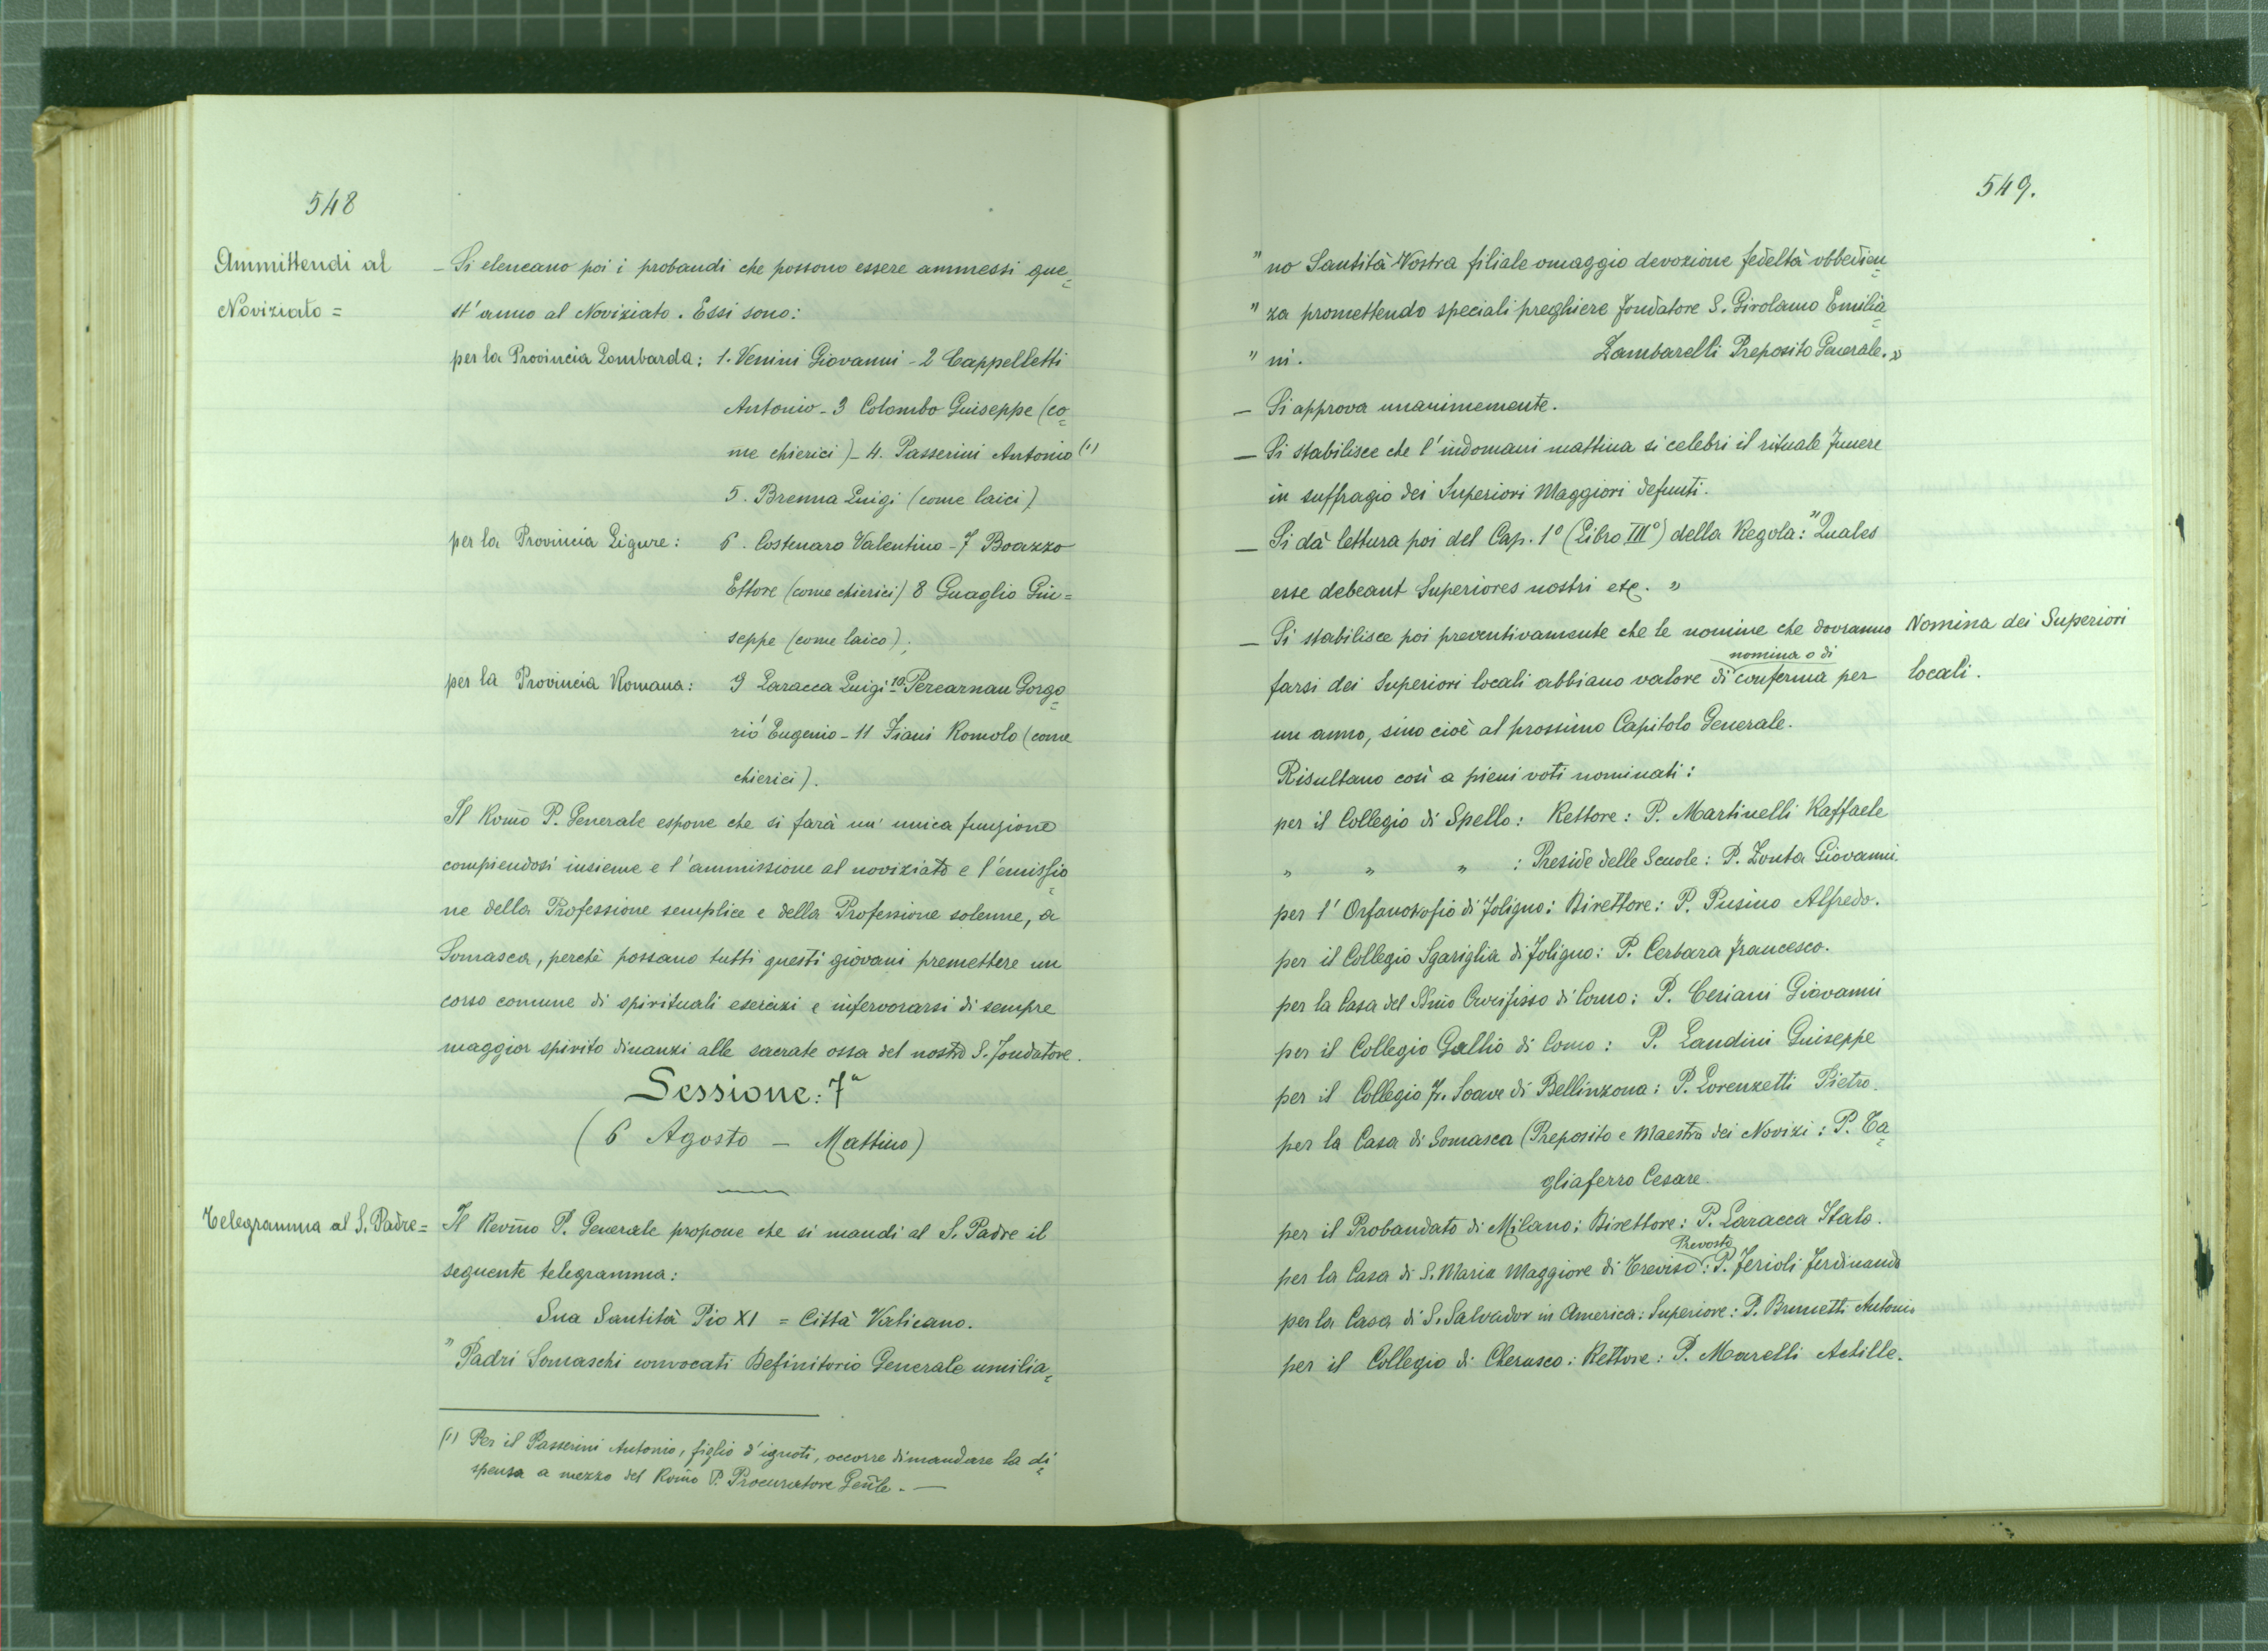 548
Ammittendi al
Noviziato =
– Si elencano poi i probandi che possono essere ammessi que=
st'anno al Noviziato. Essi sono:
per la Provincia Lombarda: 1. Venini Giovanni – 2 Cappelletti
Antonio – 3 Colombo Giuseppe (co=
me chierici) – 4. Passerini Antonio (1)
5. Brenna Luigi (come laici)
per la Provincia Ligure: 6. Costenaro Valentino – 7 Boazzo
Ettore (come chierici) 8 Guaglio Giu=
seppe (come laico);
per la Provincia Romana: 9 Laracca Luigi 10. Percarnau Gorgo=
rió Eugenio – 11 Fiani Romolo (come
chierici).
Il Rom̃o P. Generale espone che si farà un' unica funzione
compiendosi insieme e l'ammissione al noviziato e l'emissio=
ne della Professione semplice e della Professione solenne, a
Somasca, perchè possano tutti questi giovani premettere un
corso comune di spirituali esercizi e infervorarsi di sempre
maggior spirito dinanzi alle sacrate ossa del nostro S. Fondatore.
Sessione: 7a
(6 Agosto – Mattino)
Telegramma al S. Padre =
Il Revm̃o P. Generale propone che si mandi al S. Padre il
seguente telegramma:
Sua Santità Pio XI = Città Vaticano.
" Padri Somaschi convocati Definitorio Generale umilia=
(1) Per il Passerini Antonio, figlio d'ignoti, occorre dimandare la di=
spensa a mezzo del Rom̃o P. Procuratore Geñle. –
549.
" no Santità Vostra filiale omaggio devozione fedeltà obbedien=
" za promettendo speciali preghiere fondatore S. Girolamo Emilia=
" ni. Zambarelli Preposito Generale. »
– Si approva unanimemente.
– Si stabilisce che l'indomani mattina si celebri il rituale funere
in suffragio dei Superiori Maggiori defunti.
– Si dà lettura poi del Cap. 1° (Libro III°) della Regola: "Quales
esse debeant Superiores nostri etc. »
– Si stabilisce poi preventivamente che le nomine che dovranno
Nomina dei Superiori
locali.
nomina o di
farsi dei Superiori locali abbiano valore di conferma per
un anno, sino cioè al prossimo Capitolo Generale.
Risultano così a pieni voti nominati:
per il Collegio di Spello: Rettore: P. Martinelli Raffaele
" " " : Preside delle Scuole: P. Zonta Giovanni.
per l'Orfanotrofio di Foligno: Direttore: P. Pusino Alfredo.
per il Collegio Sgariglia di Foligno: P. Cerbara Francesco.
per la Casa del SSm̃o Crocifisso di Como: P. Ceriani Giovanni
per il Collegio Gallio di Como: P. Landini Giuseppe
per il Collegio F. Soave di Bellinzona: P. Lorenzetti Pietro.
per la Casa di Somasca (Preposito e Maestro dei Novizi: P. Ta=
gliaferro Cesare.
per il Probandato di Milano: Direttore: P. Laracca Italo.
Prevosto
per la Casa di S. Maria Maggiore di Treviso: P. Ferioli Ferdinando
per la Casa di S. Salvador in America: Superiore: P. Brunetti Antonio
per il Collegio di Cherasco: Rettore: P. Marelli Achille.